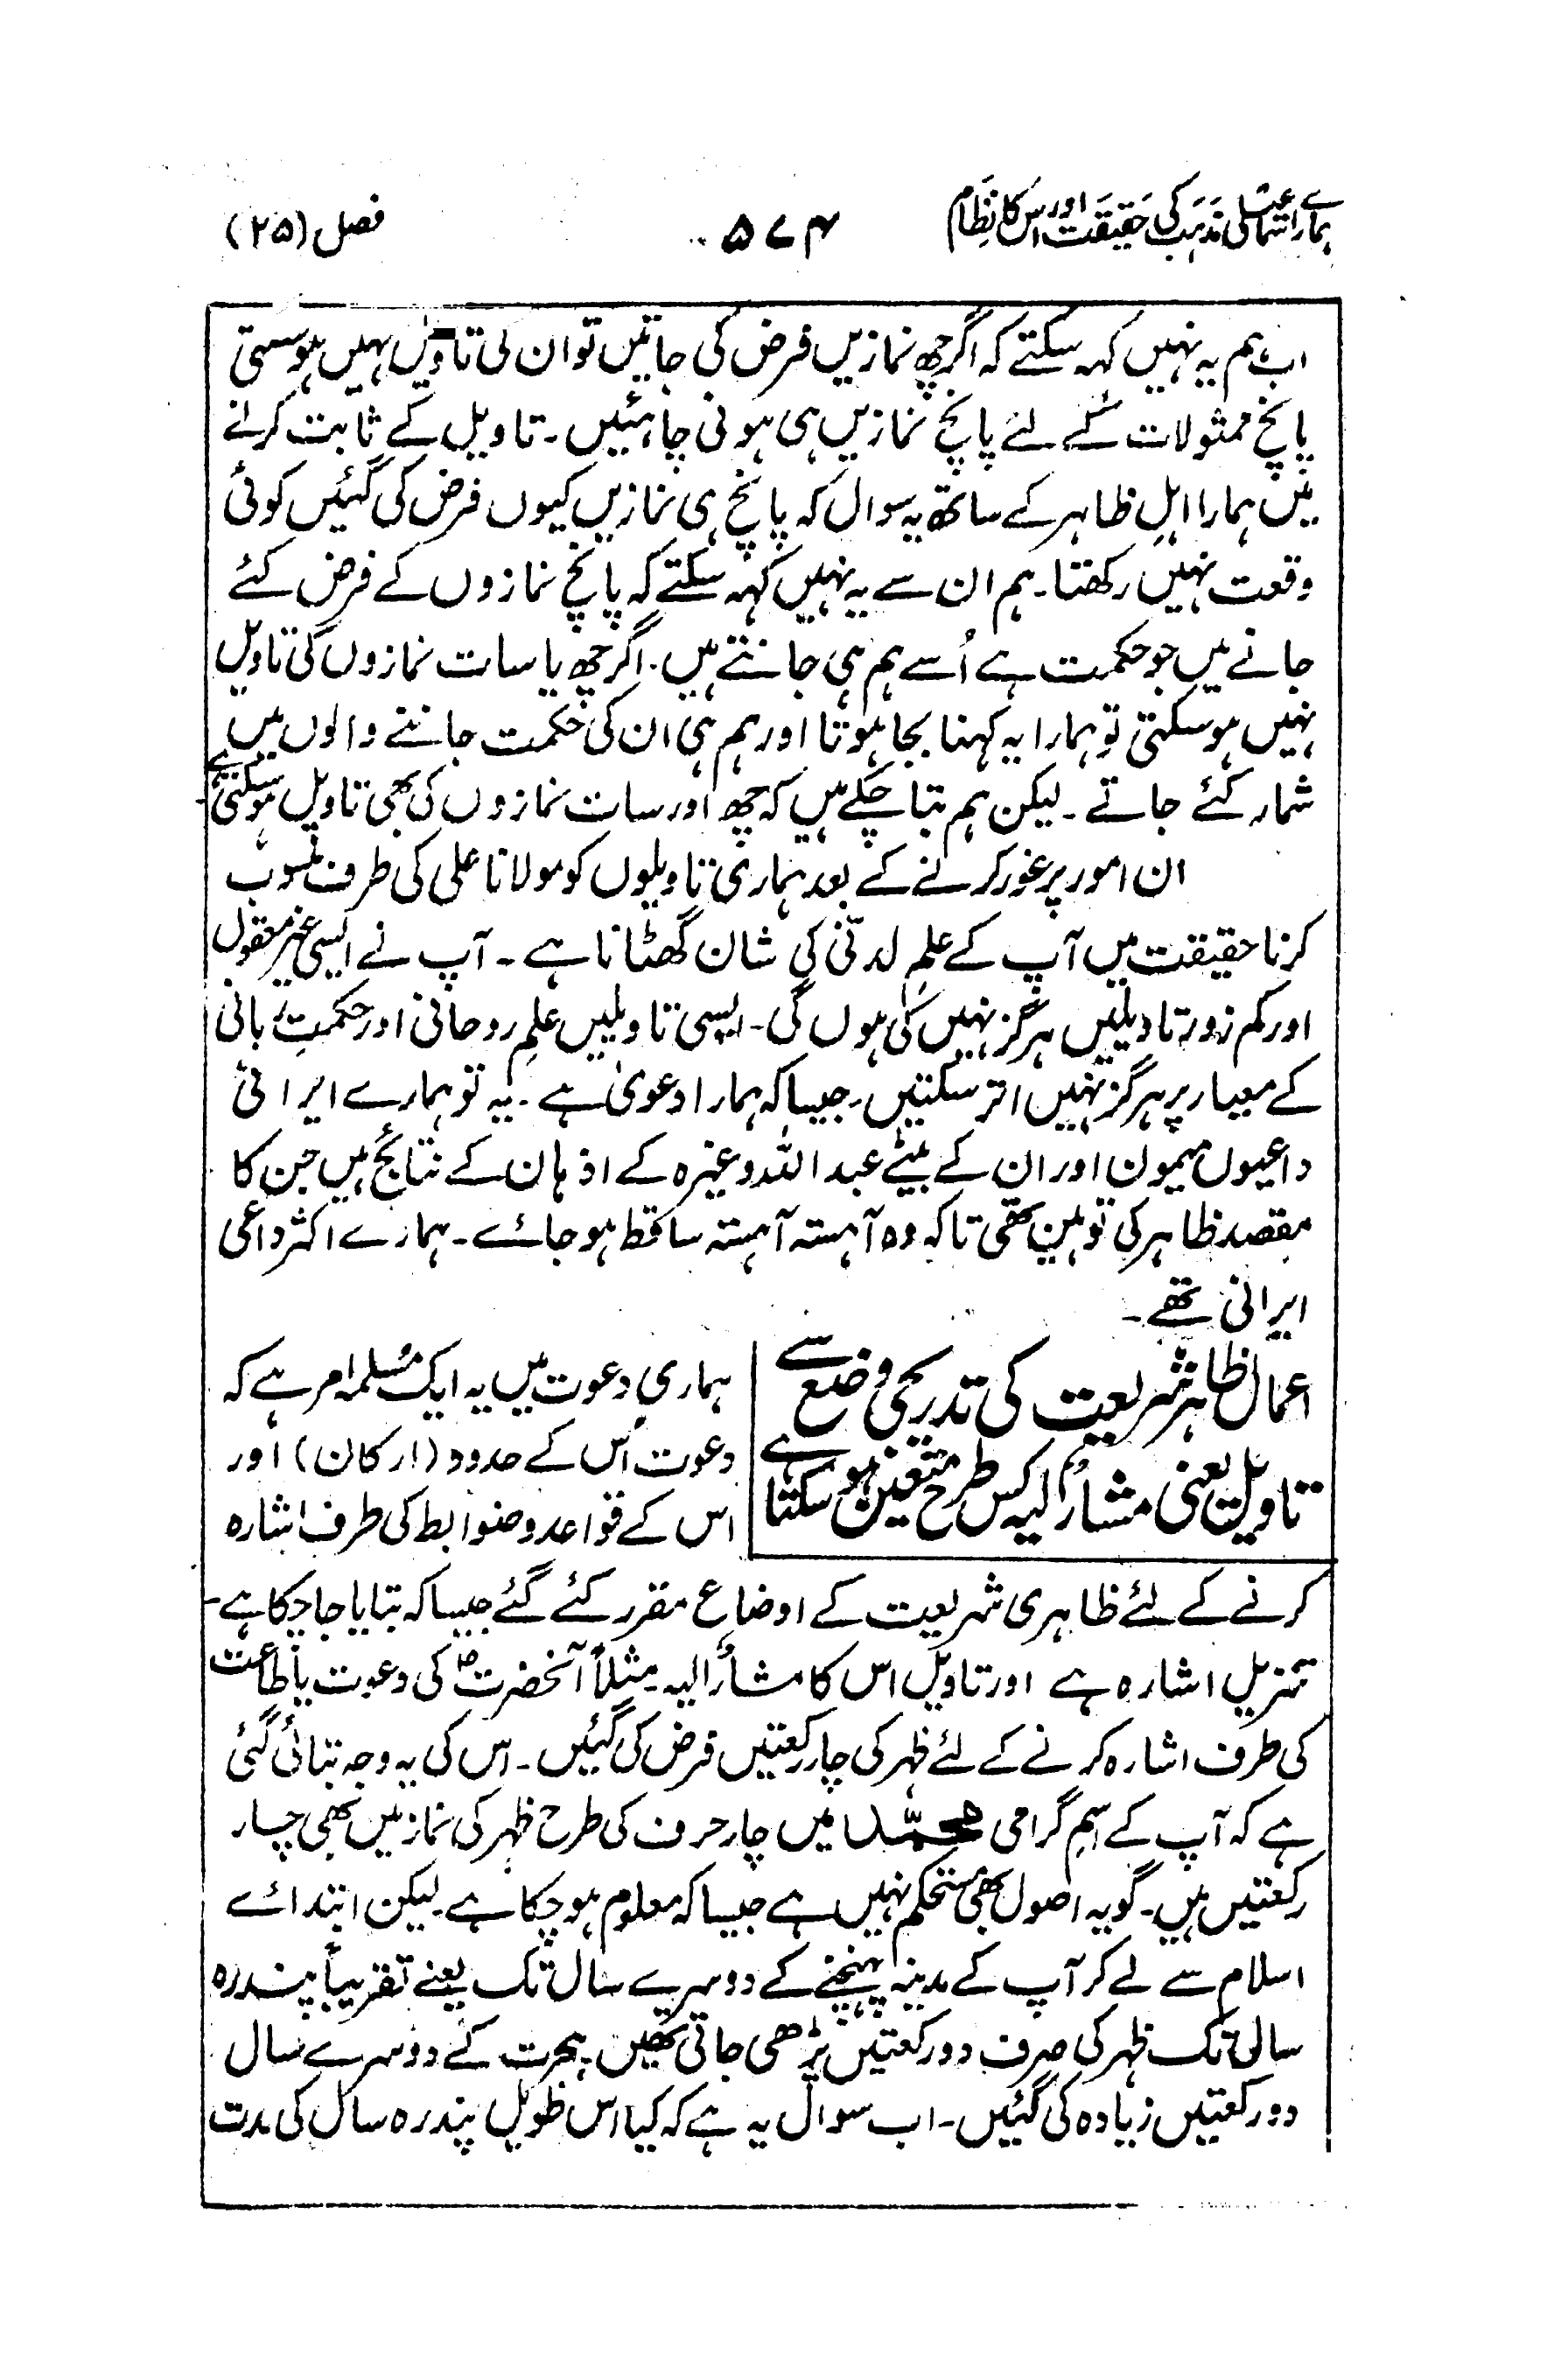 ہمارے اسماعیلی مذہب کی حقیقت اور اس کا نظام
۵۷۴
فصل (۲۵)
اب ہم یہ نہیں کہہ سکتے کہ اگر چھ نمازیں فرض کی جاتیں تو ان کی تاویل نہیں ہو سکتی
پانچ ممثولات کے لئے پانچ نمازیں ہی ہونی چاہئیں۔ تاویل کے ثابت کرنے
میں ہمارا اہلِ ظاہر کے ساتھ یہ سوال کہ پانچ ہی نمازیں کیوں فرض کی گئیں کوئی
وقعت نہیں رکھتا۔ ہم ان سے یہ نہیں کہہ سکتے کہ پانچ نمازوں کے فرض کئے
جانے میں جو حکمت ہے اُسے ہم ہی جانتے ہیں۔ اگر چھ یا سات نمازوں کی تاویل
نہیں ہو سکتی تو ہمارا یہ کہنا بجا ہوتا اور ہم ہی ان کی حکمت جاننے والوں میں
شمار کئے جاتے۔ لیکن ہم بتا چکے ہیں کہ چھ اور سات نمازوں کی بھی تاویل ہو سکتی ہے
ان امور پر غور کرنے کے بعد ہماری تاویلوں کو مولانا علی کی طرف منسوب
کرنا حقیقت میں آپ کے علمِ لدنّی کی شان گھٹانا ہے۔ آپ نے ایسی غیر معقول
اور کم زور تاویلیں ہرگز نہیں کی ہوں گی۔ ایسی تاویلیں علمِ روحانی اور حکمتِ ربانی
کے معیار پر ہرگز نہیں اتر سکتیں۔ جیسا کہ ہمارا دعویٰ ہے۔ یہ تو ہمارے ایرانی
داعیوں میمون اور ان کے بیٹے عبد اللہ وغیرہ کے اذہان کے نتائج ہیں جن کا
مقصد ظاہر کی توہین تھی تاکہ وہ آہستہ آہستہ ساقط ہو جائے۔ ہمارے اکثر داعی
ایرانی تھے۔
اعمال ظاہر شریعت کی تدریجی وضع سے
تاویل یعنی مشارٌ الیہ کس طرح متعین ہو سکتا ہے
ہماری دعوت میں یہ ایک مُسلمہ امر ہے کہ
دعوت اُس کے حدود (ارکان) اور
اس کے قواعد و ضوابط کی طرف اشارہ
کرنے کے لئے ظاہری شریعت کے اوضاع مقرر کئے گئے جیسا کہ بتایا جا چکا ہے۔
تنزیل اشارہ ہے اور تاویل اس کا مشارٌ الیہ۔ مثلاً آنحضرتؐ کی دعوت یا طاعت
کی طرف اشارہ کرنے کے لئے ظہر کی چار رکعتیں فرض کی گئیں۔ اس کی یہ وجہ بتائی گئی
ہے کہ آپ کے اسمِ گرامی محمّد میں چار حرف کی طرح ظہر کی نماز میں بھی چار
رکعتیں ہیں۔ گو یہ اصول بھی مستحکم نہیں ہے جیسا کہ معلوم ہو چکا ہے۔ لیکن ابتدائے
اسلام سے لے کر آپ کے مدینہ پہنچنے کے دوسرے سال تک یعنے تقریباً پندرہ
سال تک ظہر کی صرف دو رکعتیں پڑھی جاتی تھیں۔ ہجرت کے دوسرے سال
دو رکعتیں زیادہ کی گئیں۔ اب سوال یہ ہے کہ کیا اس طویل پندرہ سال کی مدت